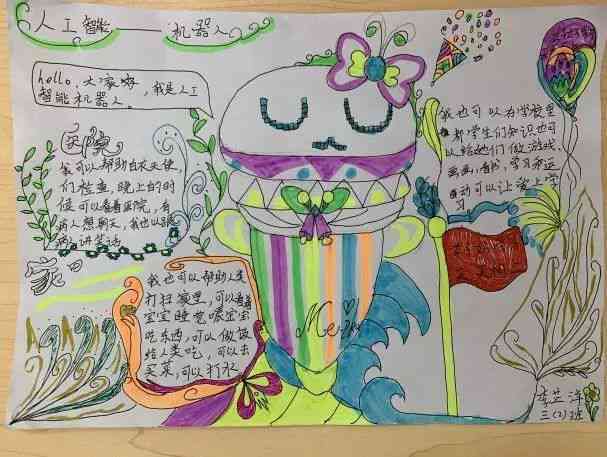 人工智能——机器人
hello,大家好,我是人工
智能机器人。
医院
我可以帮助白衣天使
们检查,晚上的时
候可以看着医院,有
病人想聊天,我也以跟
病人讲笑话
我也可以在学校里
教学生们知识也可
以给她们做游戏、
画画,看书,学习和运
动可以让爱上学
习
家
我也可以帮助人类
打扫被里,可以看
宝宝睡觉喂宝宝
吃东西,可以做饭
给人类吃,可以去
买菜,可以打水
三(2)班